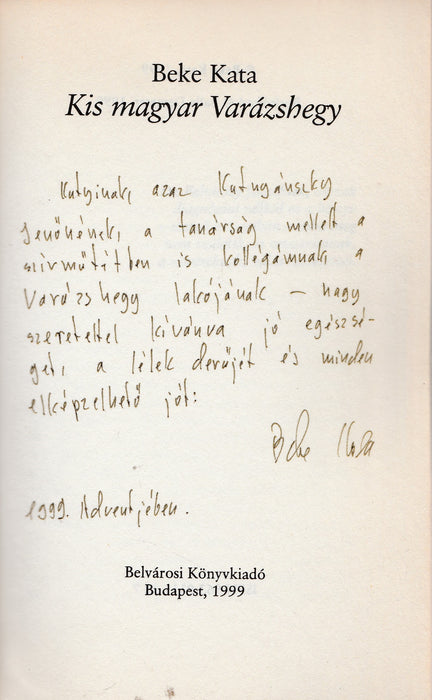 Beke Kata
Kis magyar Varázshegy
Kutyinak, azaz Kutnyánszky
Jenőnének, a tanárság mellett a
szívműtétben is kollégámnak, a
Varázshegy lakójának – nagy
szeretettel kívánva jó egészsé-
get, a lélek derűjét és minden
elképzelhető jót:
Beke Kata
1999. Adventjében.
Belvárosi Könyvkiadó
Budapest, 1999